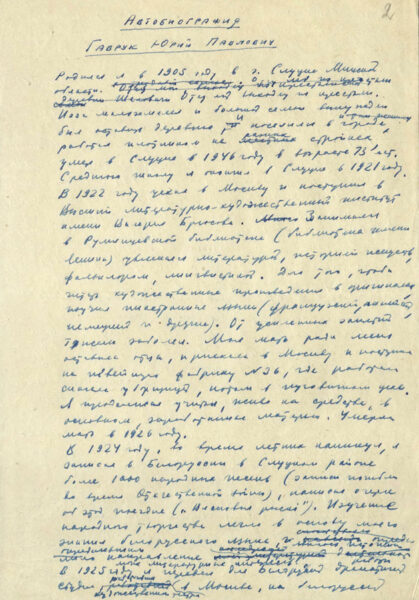 2
Автобиография
Гаврук Юрий Павлович
Родился я в 1905 году, в г. Слуцке Минской
области.
Отец мой выходец из крестьян.
Из-за малоземелья и большой семьи вынужден
был оставить деревню и поселился в городе,
работал плотником на разных стройках,
умер в Слуцке в 1946 году в возрасте 73 лет.
Среднюю школу я окончил в Слуцке в 1921 году.
В 1922 году уехал в Москву и поступил в
Высший литературно-художественный институт
имени Валерия Брюсова. Занимаясь
в Румянцевской библиотеке (библиотека имени
Ленина) увлекался литературой, историей искусств,
фольклором, лингвистикой. Для того, чтобы
читать художественные произведения в оригинале,
изучил иностранные языки (французский, английский
немецкий и другие). От усиленных занятий
тяжело заболел. Моя мать ради меня
оставила отца, приехала в Москву и поступила
на швейную фабрику №36, где работала
сначала уборщицей, потом в пуговичном цехе.
Я продолжал учиться, живя на средства, в
основном, заработанные матерью. Умерла
мать в 1926 году.
В 1924 году, во время летних каникул, я
записал в Белоруссии в Слуцком районе
более 1000 народных песень (записи погибли
во время Отечественной войны), написал очерк
об этой поездке. Изучение
народного творчества легло в основу моего
знания белорусского языка и
мои направление
В 1925 году я перевел для Белорусской драматической
студии в Москве, на белорусский